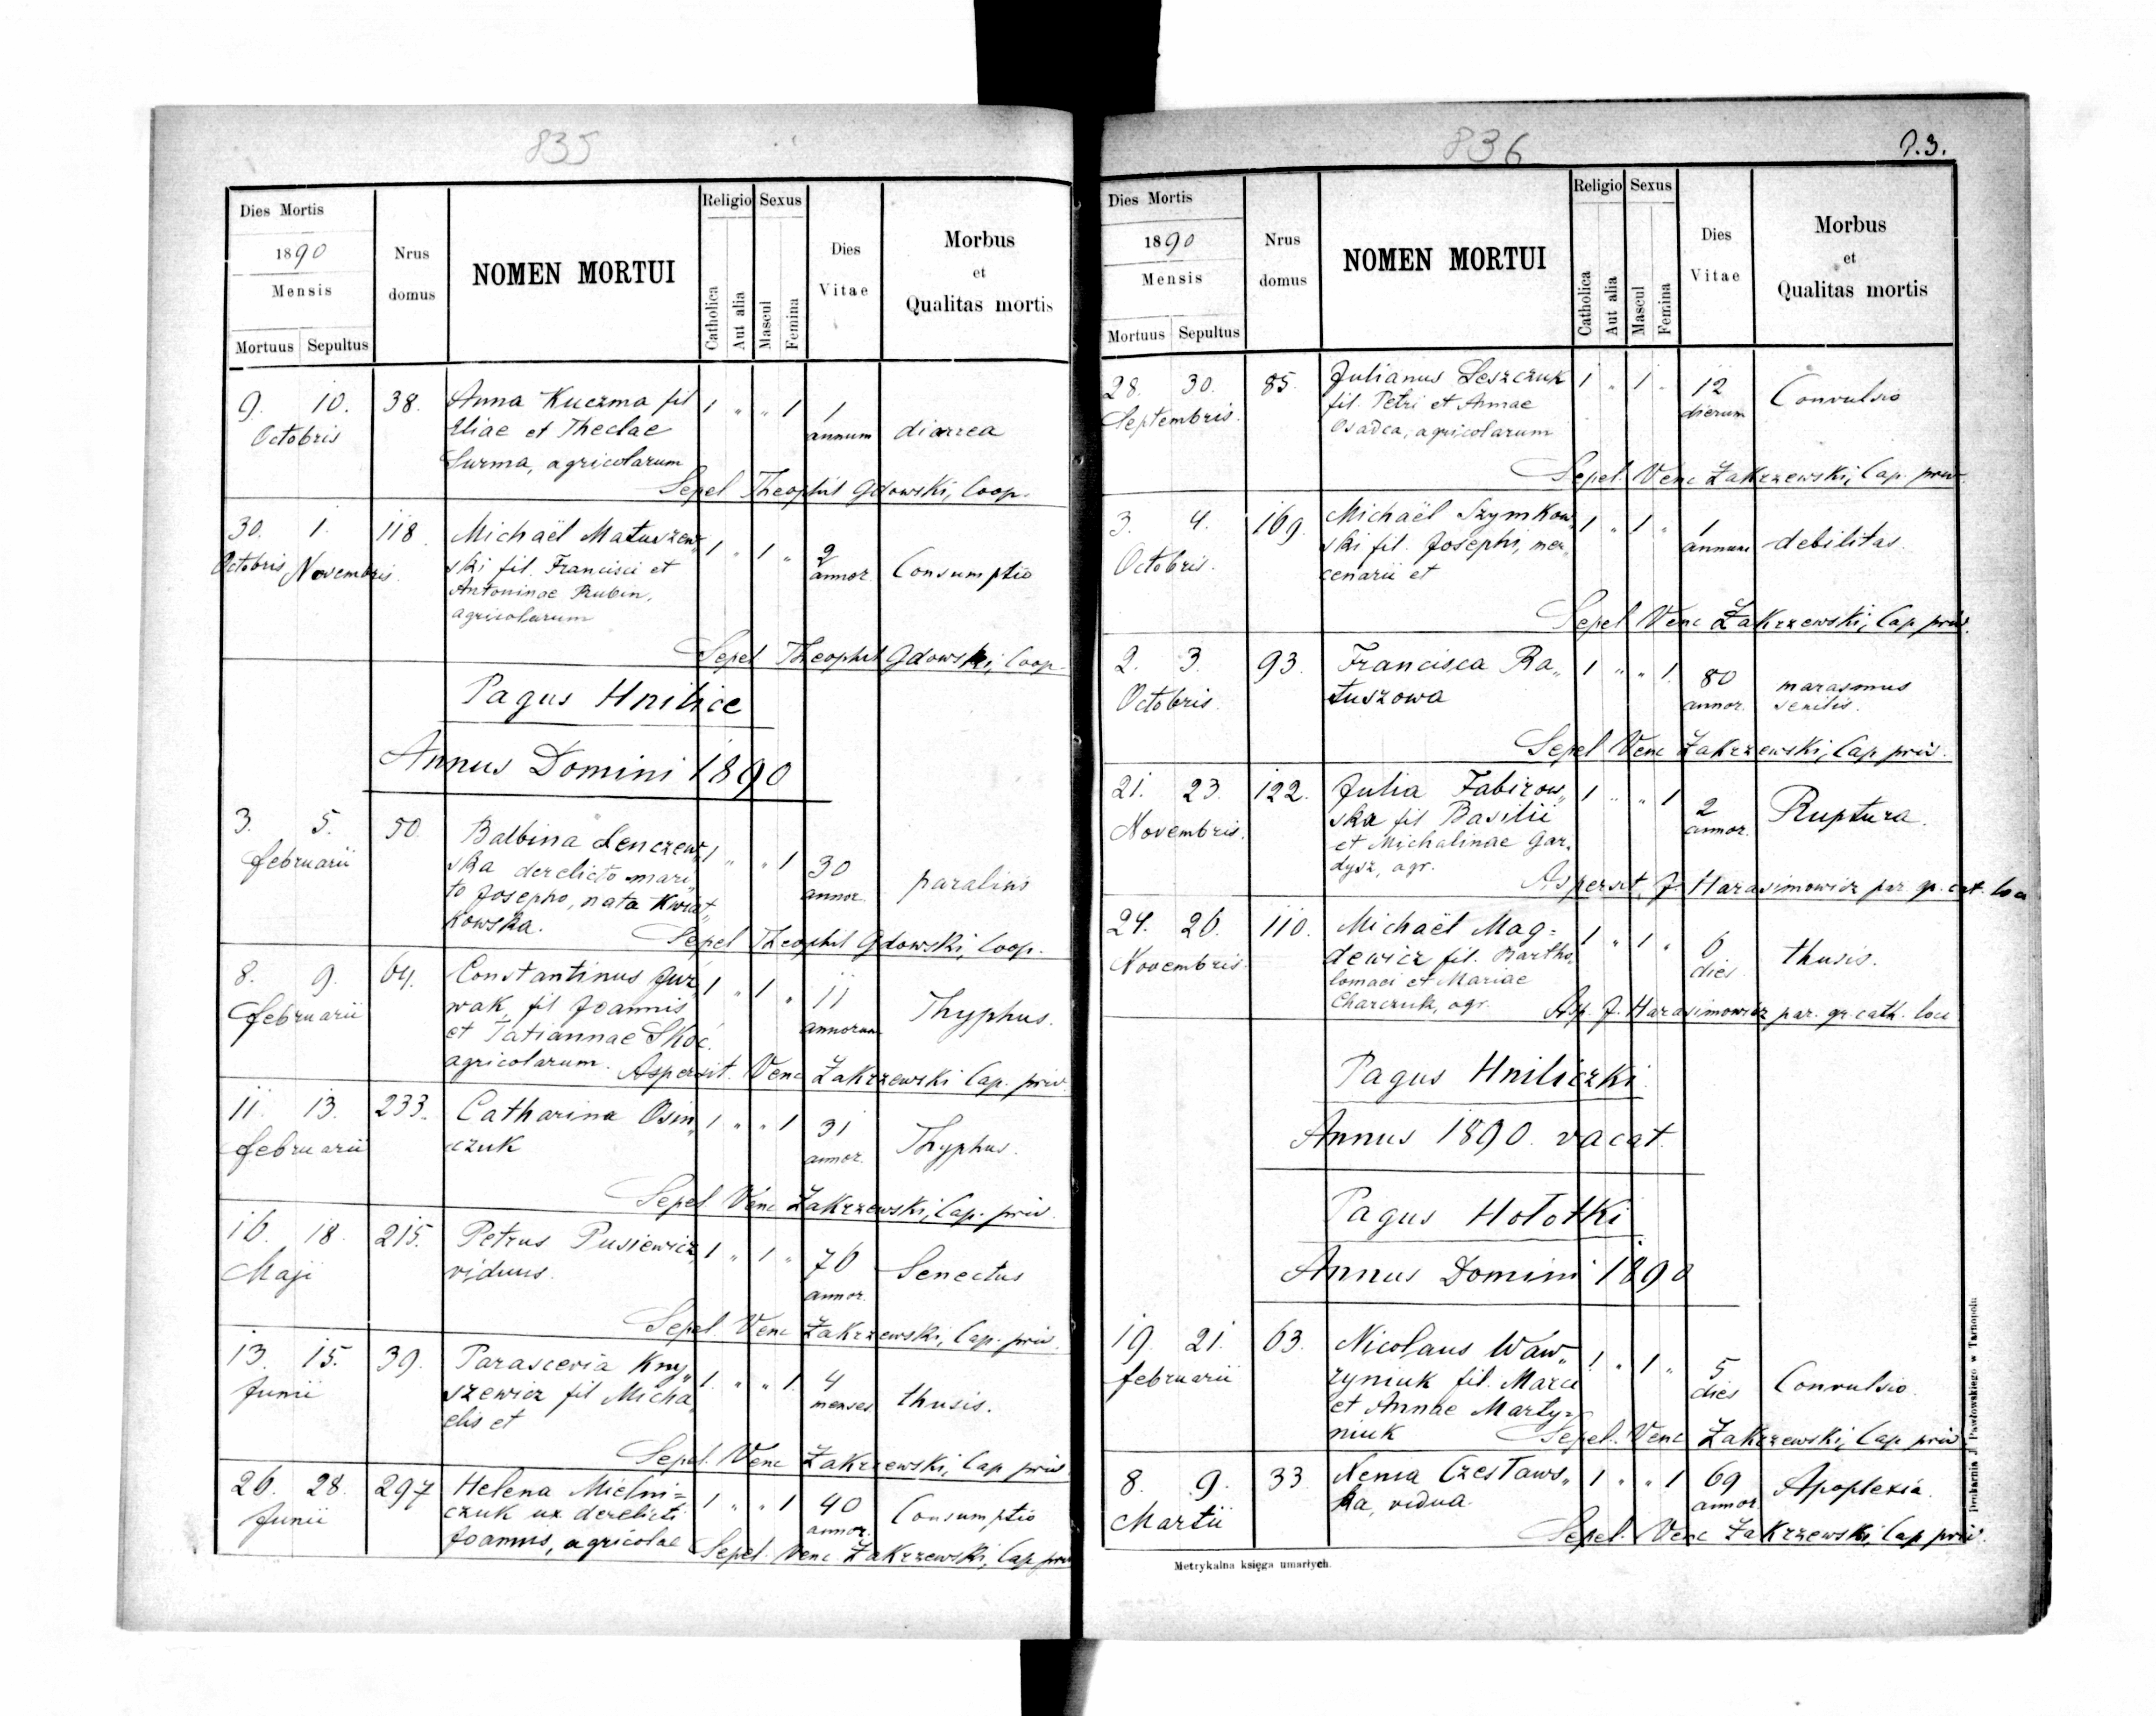 835
Dies Mortis
1890
Mensis
Mortuus Sepultus
Nrus
domus
NOMEN MORTUI
Religio
Catholica
Aut alia
Sexus
Mascul
Femina
Dies
Vitae
Morbus
et
Qualitas mortis
9. 10. 38. Anna Kuczma fil 1 " " 1 1
Octobris Eliae et Theclae annum diarrea
Surma, agricolarum
Sepel Theophil Gdowski, Coop.
30. 1. 118. Michaël Matuszew„ 1 " 1 " 2
Octobris Novembris. ski fil. Francisci et annor. Consumptio
Antoninae Rubin,
agricolarum
Sepel Theophil Gdowski, Coop.
Pagus Hnilice
Annus Domini 1890
3. 5. 50. Balbina Lenczew„ 1 " " 1 30
februarii ska derelicto mari„ annor. paralins
to Josepho, nata Kwiat„
kowska.
Sepel Theophil Gdowski, Coop.
8. 9. 64. Constantinus Jur„ 1 " 1 " 11
februarii wak, fil Joannis annorum Thyphus.
et Tatiannae Skoć.
agricolarum. Aspersit. Venc Zakrzewski Cap. priv.
11. 13. 233. Catharina Osin„ 1 " " 1 31
februarii czuk annor. Thyphus.
Sepel Venc Zakrzewski, Cap. priv.
16. 18. 215. Petrus Pusiewicz, 1 " 1 " 76
Maji viduus. annor. Senectus
Sepel. Venc Zakrzewski, Cap. priv.
13. 15. 39. Parascevia Kny„ 1. " " 1. 4
Junii szewicz fil Micha„ menses thusis.
elis et
Sepel. Venc Zakrzewski, Cap priv.
26. 28. 297 Helena Mielni= 1 " " 1 40
Junii czuk ux derelicti annor. Consumptio
Joannis, agricolae Sepel. Venc. Zakrzewski, Cap priv
836
93.
Dies Mortis
1890
Mensis
Mortuus Sepultus
Nrus
domus
NOMEN MORTUI
Religio
Catholica
Aut alia
Sexus
Mascul
Femina
Dies
Vitae
Morbus
et
Qualitas mortis
28. 30. 85. Julianus Leszczuk 1 " 1 " 12
Septembris. fil. Petri et Annae dierum Convulsio
Osadca, agricolarum
Sepel. Venc Zakrzewski, Cap. priv
3. 4. 169. Michaël Szymkow„ 1 " 1 " 1
Octobris. ski fil. Josephi, mer„ annum debilitas.
cenarii et
Sepel Venc Zakrzewski, Cap priv.
2. 3. 93. Francisca Ra„ 1 " " 1. 80
Octobris. tuszowa annor. marasmus
senilis.
Sepel Venc Zakrzewski, Cap priv.
21. 23. 122. Julia Fabirow„ 1 " " 1 2
Novembris. ska fil Basilii annor. Ruptura.
et Michalinae Gar„
dysz, agr.
Aspersit, J. Harasimowicz par. gr. cat. loci
24. 26. 110. Michaël Mag= 1 " 1 " 6
Novembris. dewicz fil. Bartho„ dies thusis.
lomaei et Mariae
Charczuk, agr. Asp. J. Harasimowicz par. gr. cath. loci
Pagus Hniliczki
Annus 1890. vacat.
Pagus Hołotki
Annus Domini 1890
19. 21. 63. Nicolaus Waw„ 1 " 1 " 5
februarii rzyniuk fil. Marci dies Convulsio.
et Annae Marty=
niuk Sepel. Venc Zakrzewski, Cap priv
8. 9. 33. Xenia Czesław„ 1 " " 1 69
Martii ska, vidua. annor Apoplexia.
Sepel. Venc Zakrzewski, Cap priv.
Metrykalna księga umarłych.
Drukarnia J. Pawłowskiego w Tarnopolu